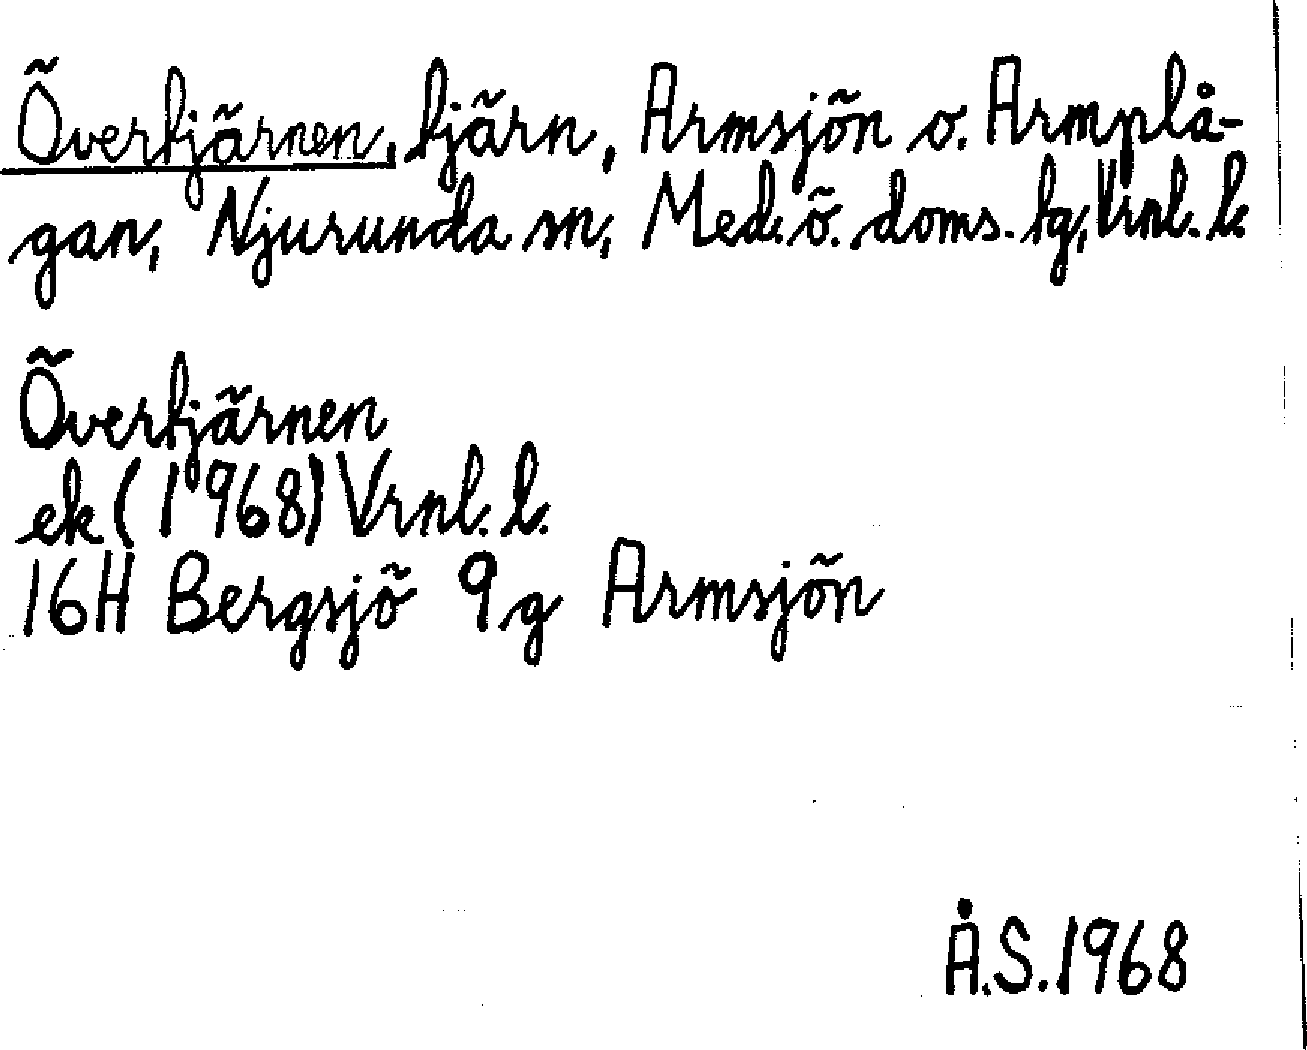 Övertjärnen, tjärn, Armsjön o. Armplå-
gan, Njurunda sn, Med. ö. doms. tg, Vrnl. l.
Övertjärnen
ek (1968) Vrnl. l.
16H Bergsjö 9g Armsjön
Å.S. 1968